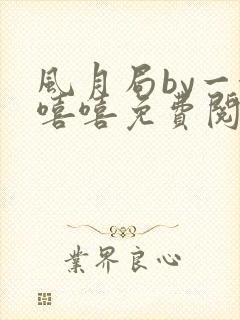 風月局by一
嘻嘻免費閱
業界良心